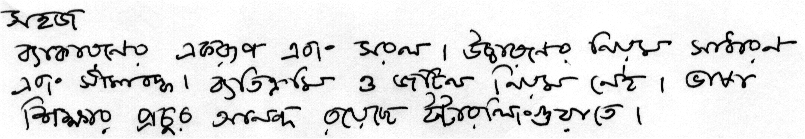 সহজ
ব্যাকারনের একরূপ এবং সরল। উচ্চারনের নিয়ম সাধারন
এবং সীমাবদ্ধ। ব্যতিক্রমি ও জটিল নিয়ম নেই। ভাষা
শিক্ষার প্রচুর আনন্দ রয়েছে ইন্টারলিংগুয়াতে।